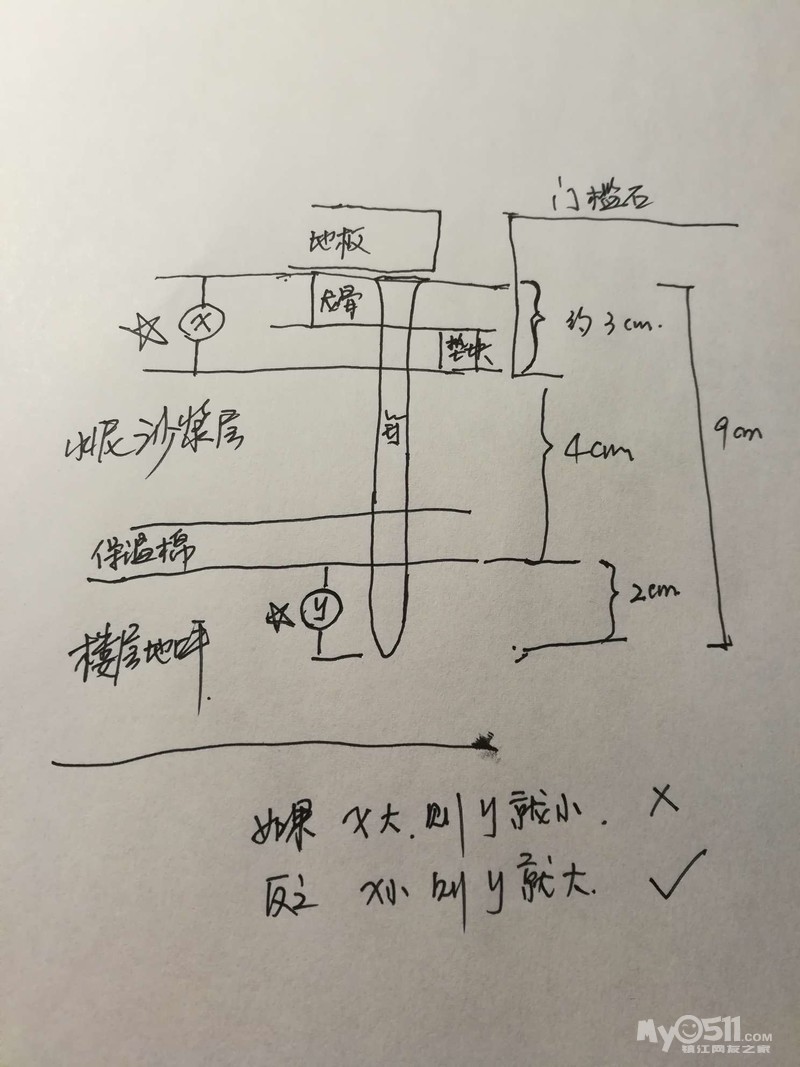 门槛石
地板
龙骨
约3cm.
☆ X
垫块
钉
9cm
水泥沙浆层
4cm
保温棉
☆ y
2cm
楼层地坪
如果 x大,则y就小. ×
反之 x小则y就大. ✓
My0511.COM
镇江网友之家